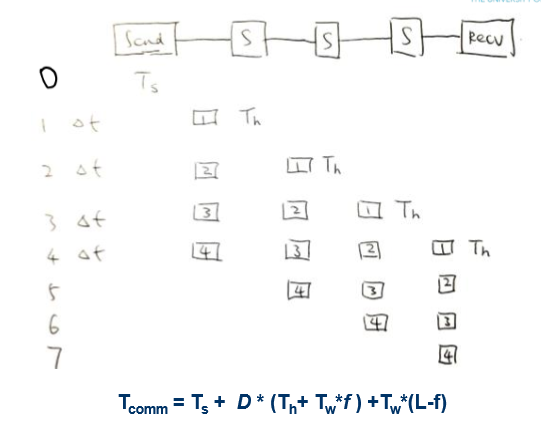 Send S S S Recv
0 Ts
1 Δt 1 Th
2 Δt 2 1 Th
3 Δt 3 2 1 Th
4 Δt 4 3 2 1 Th
5 4 3 2
6 4 3
7 4
Tcomm = Ts + D * (Th+ Tw*f ) +Tw*(L-f)